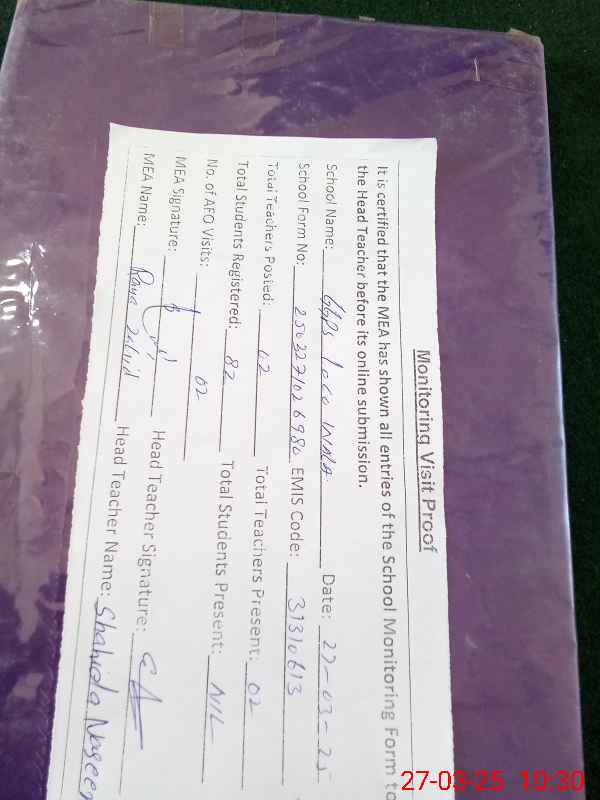 Monitoring Visit Proof
It is certified that the MEA has shown all entries of the School Monitoring Form to
the Head Teacher before its online submission.
School Name: GGPS Date: 27-03-25
School Form No: 2503271026980 EMIS Code: 31310613
Total Teachers Posted: 02 Total Teachers Present: 02
Total Students Registered: 82 Total Students Present: NIL
No. of AEO Visits: 02
MEA Signature: Head Teacher Signature:
MEA Name: Rana Zahid Head Teacher Name: Shahida Nazeer
27-03-25 10:30